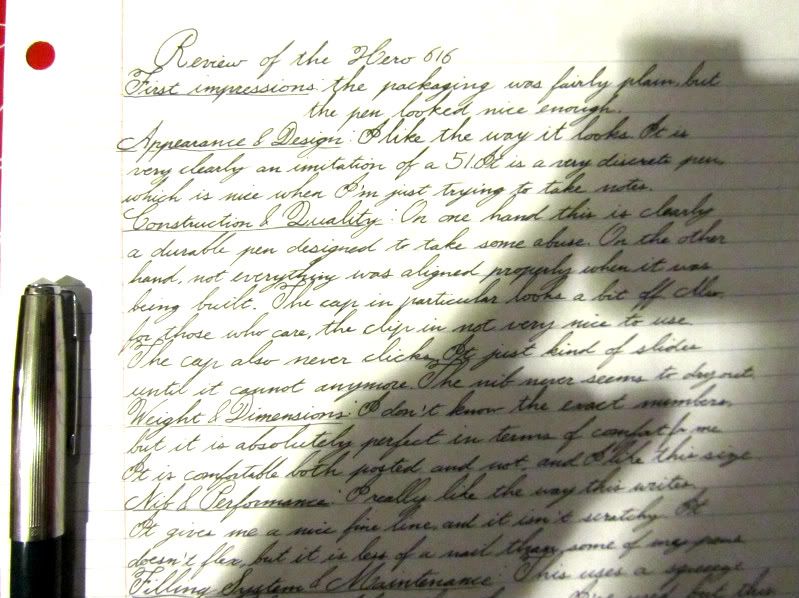 Review of the Hero 616
First impressions: the packaging was fairly plain, but
the pen looked nice enough.
Appearance & Design: I like the way it looks. It is
very clearly an imitation of a 51. It is a very discrete pen,
which is nice when I'm just trying to take notes.
Construction & Quality: On one hand this is clearly
a durable pen designed to take some abuse. On the other
hand, not everything was aligned properly when it was
being built. The cap in particular looks a bit off. Also
for those who care, the clip in not very nice to use.
The cap also never clicks. It just kind of slides
until it cannot anymore. The nib never seems to dry out.
Weight & Dimensions: I don't know the exact numbers,
but it is absolutely perfect in terms of comfort for me.
It is comfortable both posted and not, and I like this size.
Nib & Performance: I really like the way this writes.
It gives me a nice fine line, and it isn't scratchy. It
doesn't flex, but it is less of a nail than some of my pens
Filling System & Maintenance: This uses a squeeze
but this